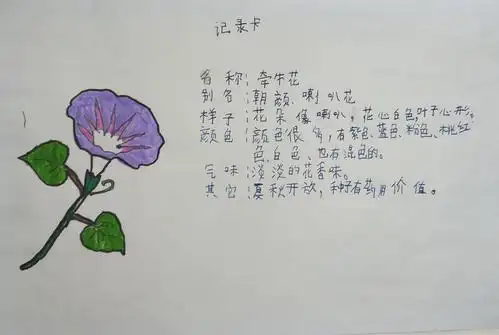 记录卡
名称:牵牛花
别名:朝颜、喇叭花
样子:花朵像喇叭,花心白色,叶子心形。
颜色:颜色很多,有紫色、蓝色、粉色、桃红
色、白色、也有混色的。
气味:淡淡的花香味。
其它:夏秋开放,种子有药用价值。